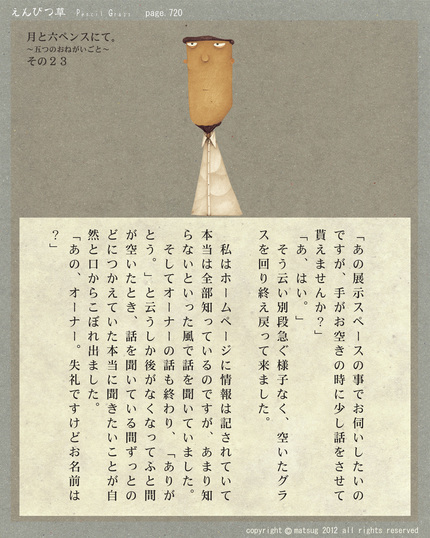 えんぴつ草 Pencil Grass page.720
月と六ペンスにて。
～五つのおねがいごと～
その２３
「あの展示スペースの事でお伺いしたいの
ですが、手がお空きの時に少し話をさせて
貰えませんか？」
「あ、はい。」
そう云い別段急ぐ様子なく、空いたグラ
スを回り終え戻って来ました。
私はホームページに情報は記されていて
本当は全部知っているのですが、あまり知
らないといった風で話を聞いていました。
そしてオーナーの話も終わり、「ありが
とう。」と云うしか後がなくなってふと間
が空いたとき、話を聞いている間ずっとの
どにつかえていた本当に聞きたいことが自
然と口からこぼれ出ました。
「あの、オーナー。失礼ですけどお名前は
？」
copyright ©matsug 2012 all rights reserved